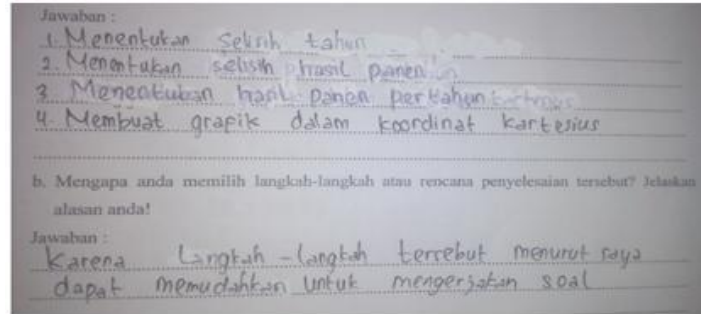 Jawaban :
1. Menentukan selisih tahun
2. Menentukan selisih hasil panen
3. Menentukan hasil panen pertahun
4. Membuat grapik dalam koordinat kartesius
b. Mengapa anda memilih langkah-langkah atau rencana penyelesaian tersebut? Jelaskan
alasan anda!
Jawaban :
Karena Langkah-langkah tercebut menurut saya
dapat memudahkan untuk mengerjakan soal